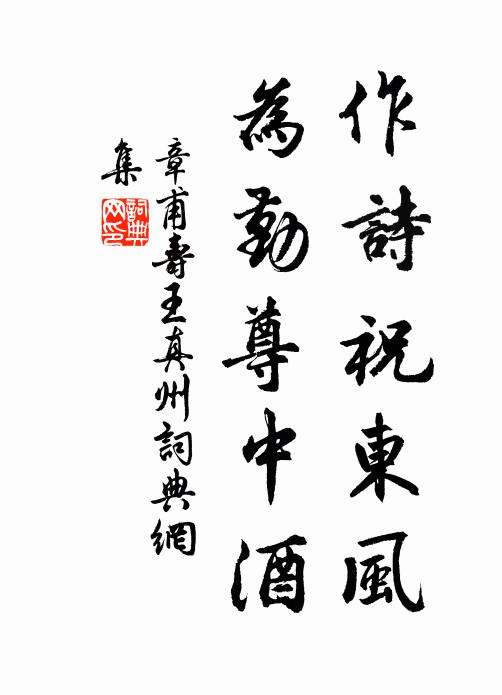 作詩祝東風
為勤尊中酒
章甫壽王真州詞典網
集
詞典
网印